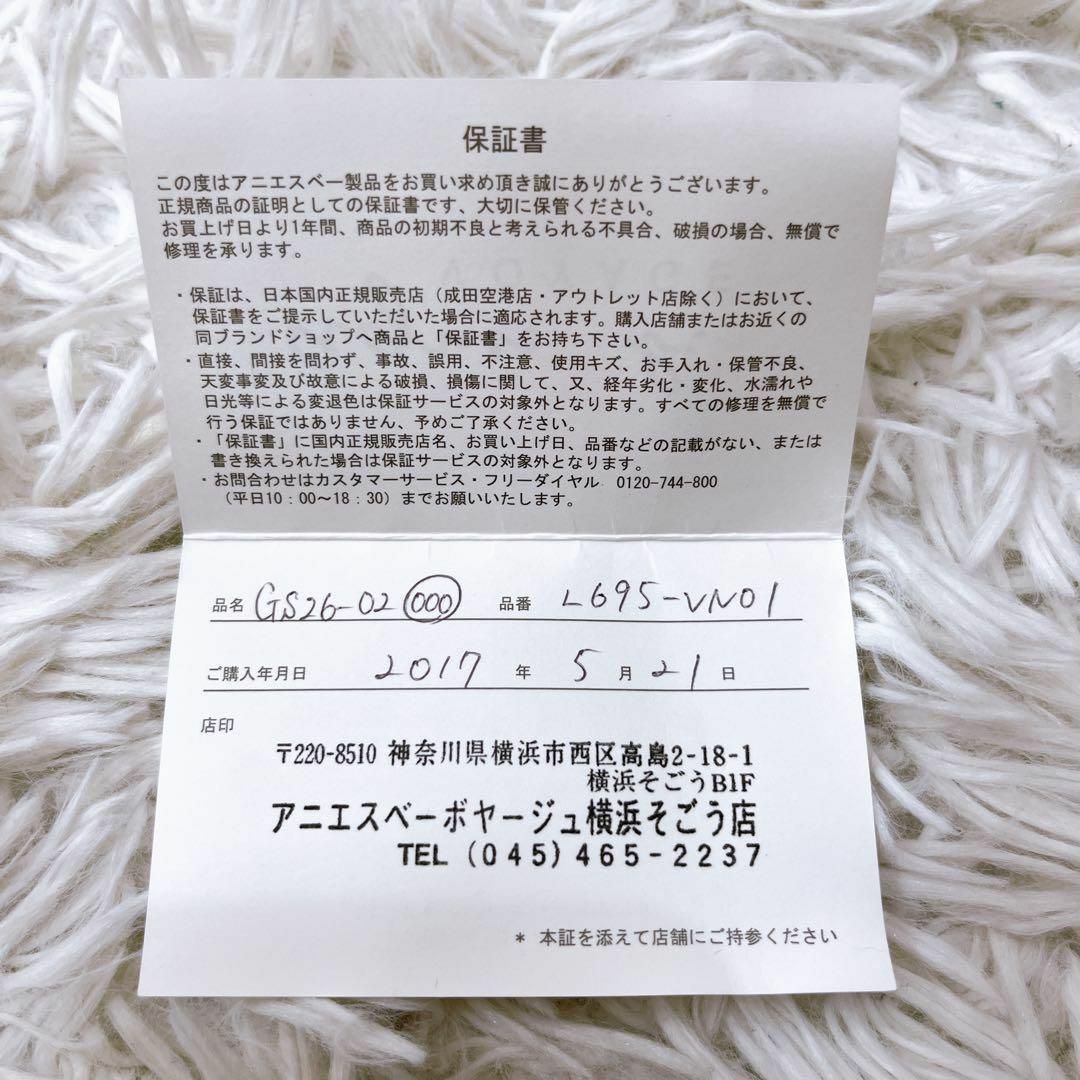 保証書
この度はアニエスベー製品をお買い求め頂き誠にありがとうございます。
正規商品の証明としての保証書です、大切に保管ください。
お買上げ日より1年間、商品の初期不良と考えられる不具合、破損の場合、無償で
修理を承ります。
・保証は、日本国内正規販売店（成田空港店・アウトレット店除く）において、
保証書をご提示していただいた場合に適応されます。購入店舗またはお近くの
同ブランドショップへ商品と「保証書」をお持ち下さい。
・直接、間接を問わず、事故、誤用、不注意、使用キズ、お手入れ・保管不良、
天変事変及び故意による破損、損傷に関して、又、経年劣化・変化、水濡れや
日光等による変退色は保証サービスの対象外となります。すべての修理を無償で
行う保証ではありません、予めご了承ください。
・「保証書」に国内正規販売店名、お買い上げ日、品番などの記載がない、または
書き換えられた場合は保証サービスの対象外となります。
・お問合わせはカスタマーサービス・フリーダイヤル 0120-744-800
（平日10：00〜18：30）までお願いいたします。
品名 GS26-02 000 品番 L695-VN01
ご購入年月日 2017 年 5 月 21 日
店印
〒220-8510 神奈川県横浜市西区高島2-18-1
横浜そごうB1F
アニエスベーボヤージュ横浜そごう店
TEL (045) 465-2237
* 本証を添えて店舗にご持参ください